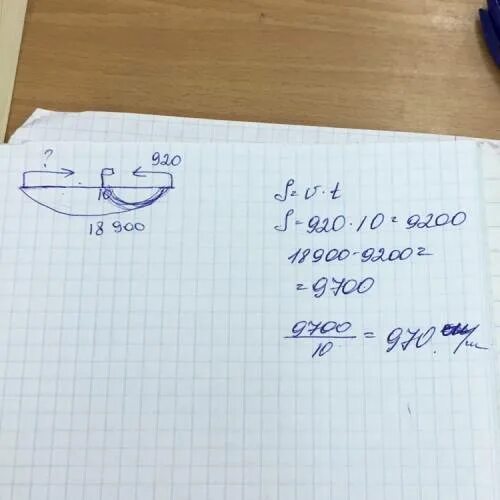 ? 920
10
18 900
S = v · t
S = 920 · 10 = 9200
18900 - 9200 =
= 9700
9700
10
= 970